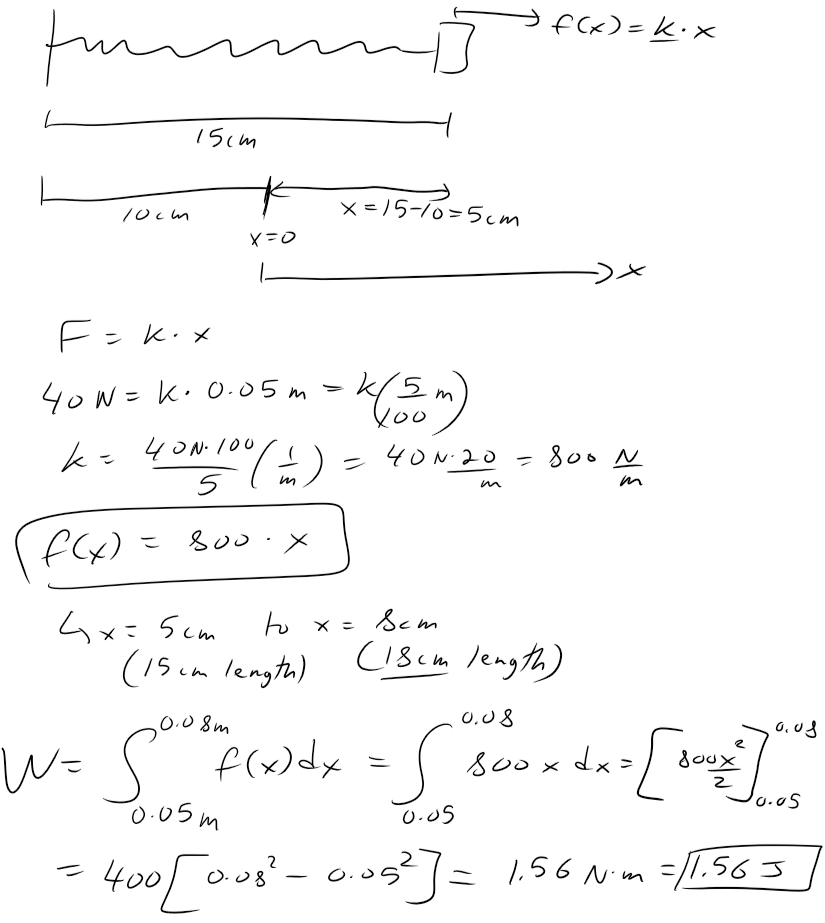 f(x) = k · x
15cm
10cm
x = 15-10 = 5cm
x=0
x
F = k · x
40N = k · 0.05 m = k(5/100 m)
k = 40N·100/5 (1/m) = 40N·20/m = 800 N/m
f(x) = 800 · x
↳ x = 5cm to x = 8cm
(15cm length) (18cm length)
W = ∫_{0.05m}^{0.08m} f(x)dx = ∫_{0.05}^{0.08} 800 x dx = [800x²/2]_{0.05}^{0.08}
= 400[0.08² - 0.05²] = 1.56 N·m = 1.56 J